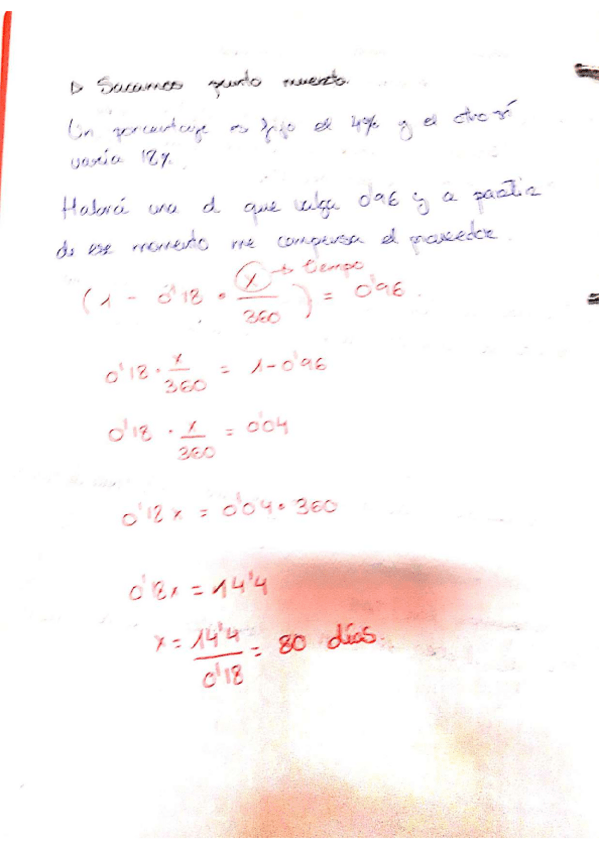 ▷ Sacamos punto muerto.
Un porcentaje es fijo el 4% y el otro sí
varía 18%.
Habrá una d que valga 0'96 y a partir
de ese momento me compensa el proveedor.
(1 - 0'18 · x/360) = 0'96. → tiempo
0'18 · x/360 = 1-0'96
0'18 · x/360 = 0'04
0'18 x = 0'04 · 360
0'18x = 14'4
x = 14'4/0'18 = 80 días.